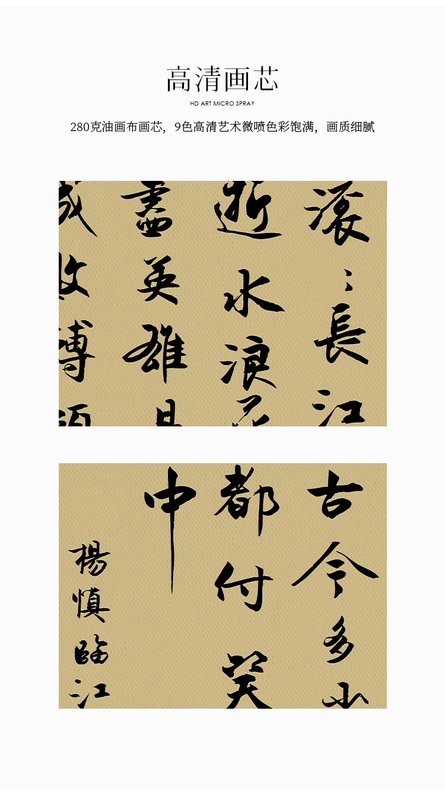 高清画芯
HD ART MICRO SPRAY
280克油画布画芯，9色高清艺术微喷色彩饱满，画质细腻
滚〻長江
逝水浪花
盡英雄
成
古今多少
都付笑
中
楊慎臨江